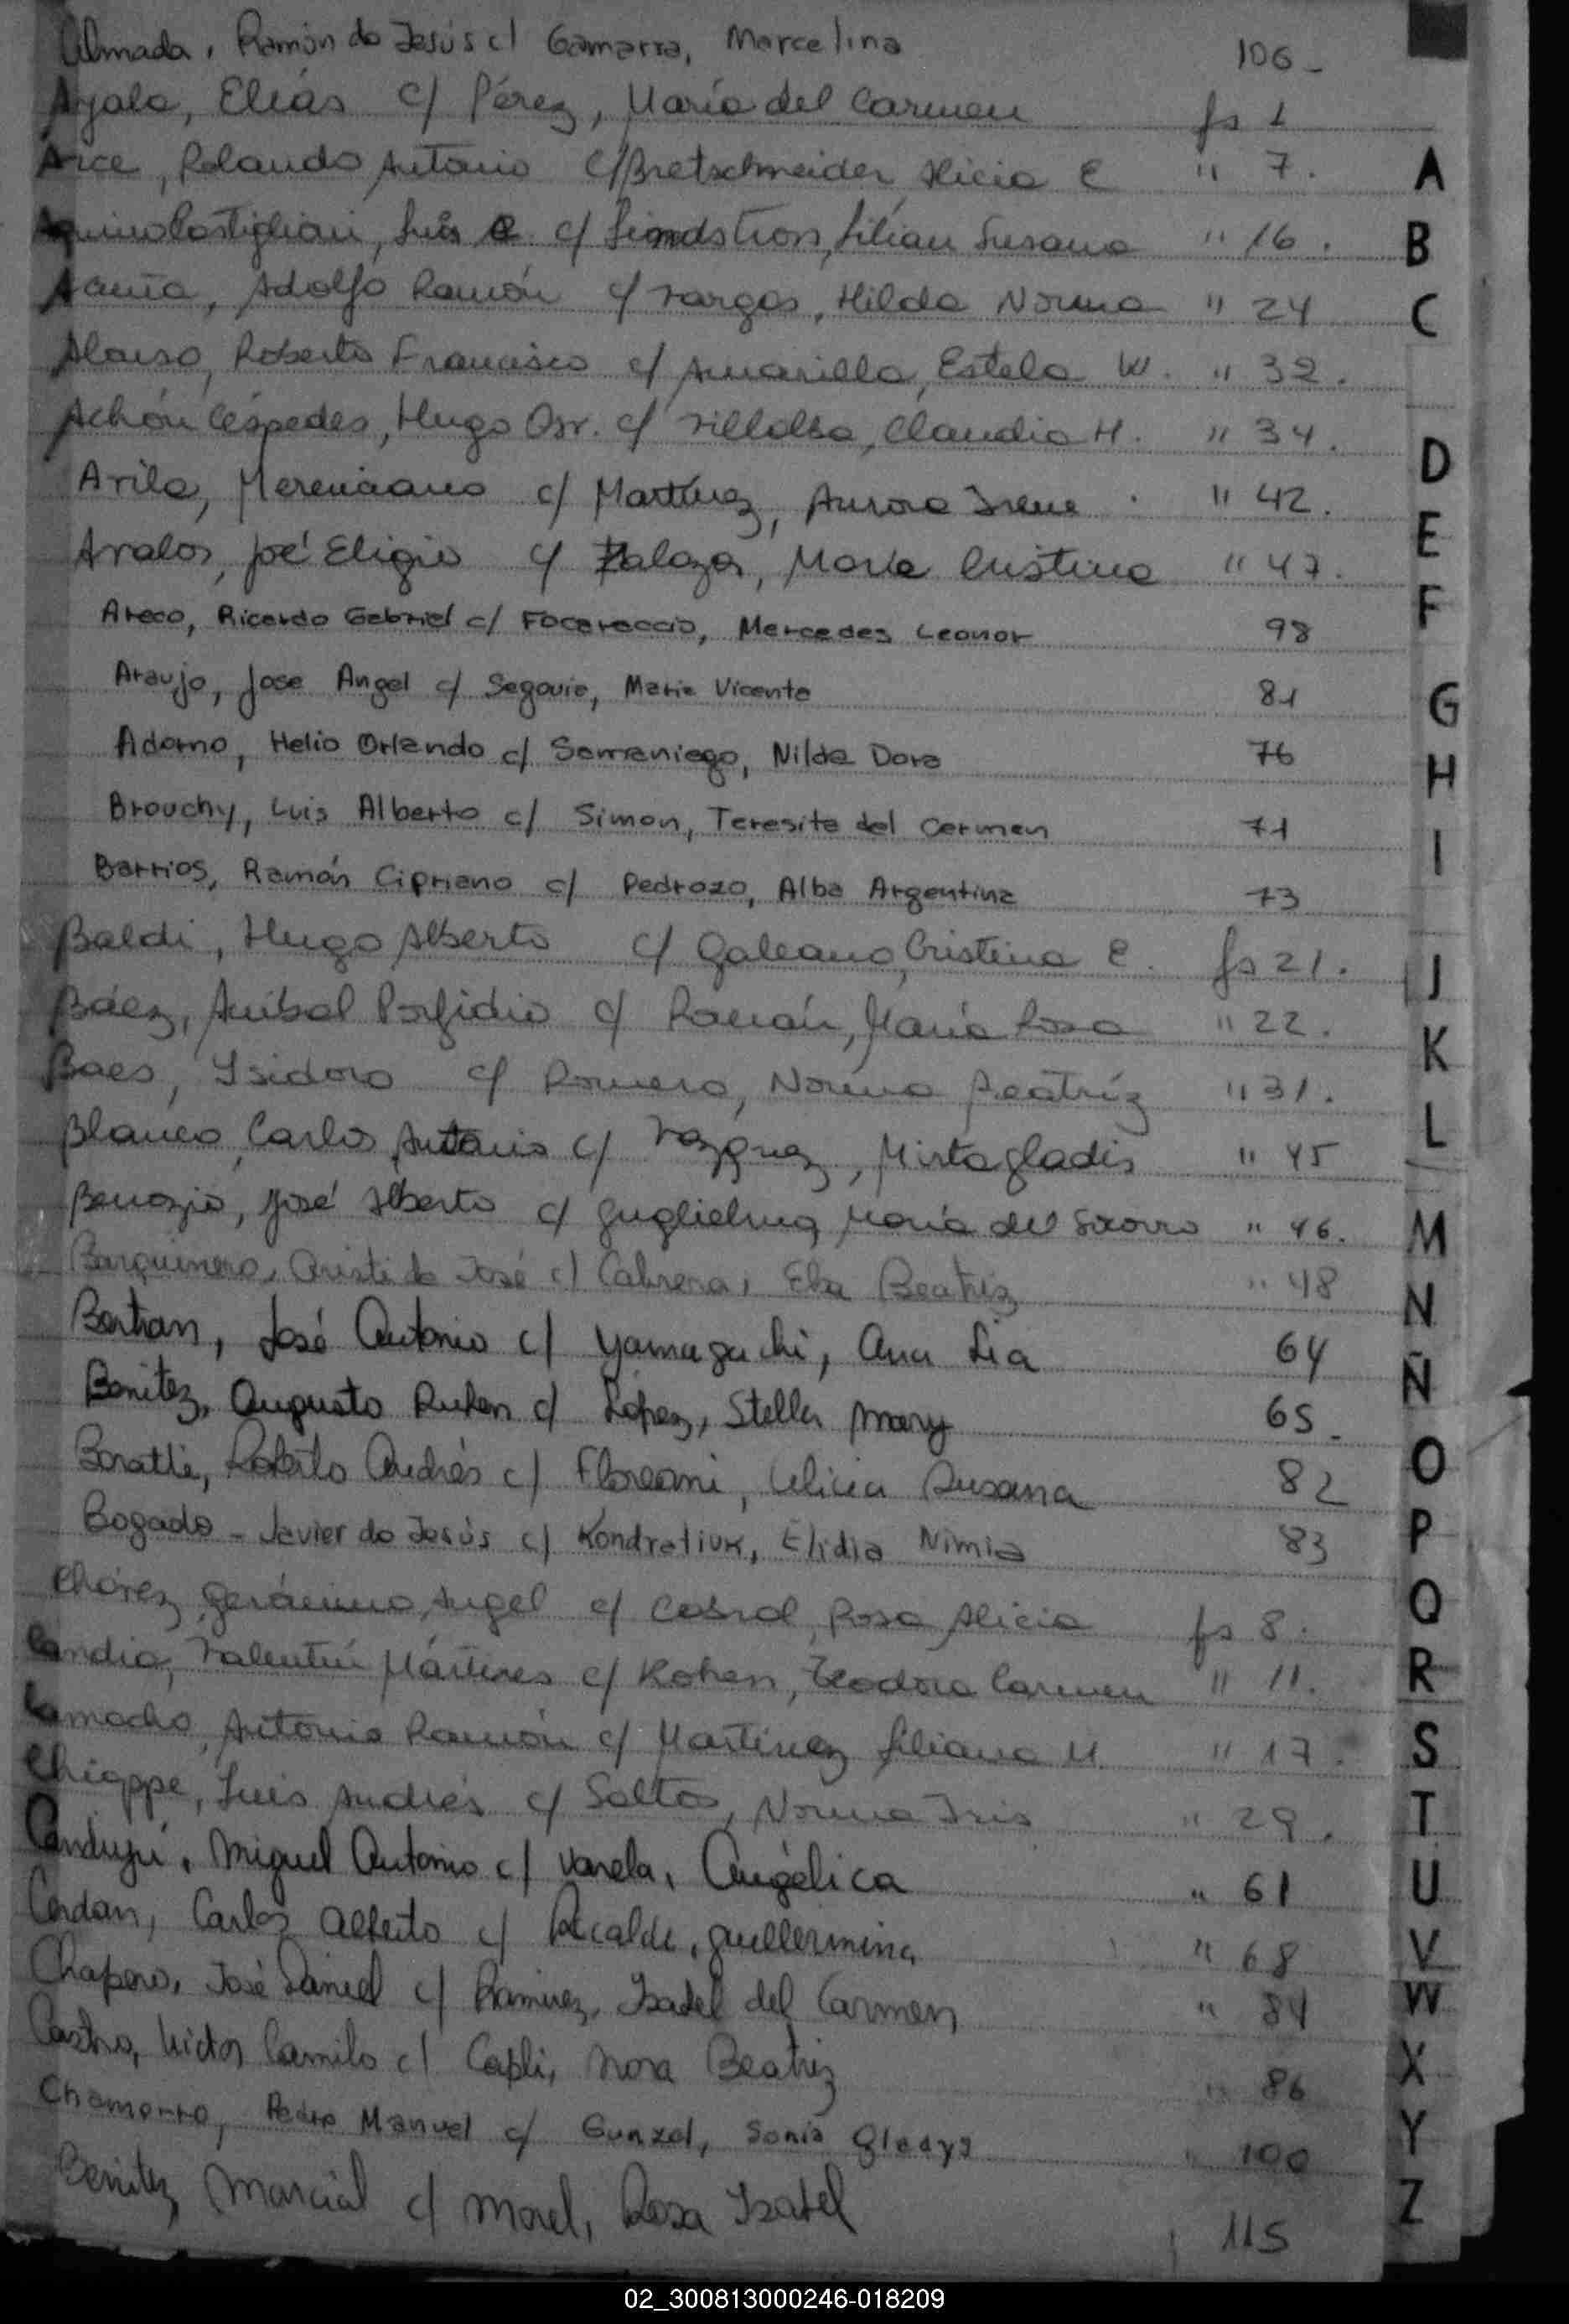 Almada, Ramón de Jesús c/ Gamarra, Marcelina 106-
Ayala, Elías c/ Pérez, María del Carmen fs 1
Arce, Rolando Antonio c/ Bretschneider, Alicia E " 7.
Aquino Costigliari, Luis c/ Lindstron, Lilian Susana " 16.
Acuña, Adolfo Ramón c/ Vargas, Hilda Norma " 24
Alonso, Roberto Francisco c/ Amarilla, Estela W. " 32.
Achón Céspedes, Hugo Osv. c/ Villalba, Claudia H. " 34.
Avila, Merenciano c/ Martínez, Aurora Irene " 42.
Avalos, José Eligio c/ Zalazar, María Cristina " 47.
Areco, Ricardo Gabriel c/ Focaraccio, Mercedes Leonor 98
Araujo, Jose Angel c/ Segovia, Maria Vicenta 81
Adorno, Helio Orlando c/ Samaniego, Nilda Dora 76
Brouchy, Luis Alberto c/ Simon, Teresita del Carmen 71
Barrios, Ramón Cipriano c/ Pedrozo, Alba Argentina 73
Baldi, Hugo Alberto c/ Galeano, Cristina E. fs 21.
Báez, Aníbal Porfidio c/ Román, María Rosa " 22.
Baes, Isidoro c/ Romero, Norma Beatríz " 31.
Blanco, Carlos Antonio c/ Vazquez, Mirta Gladis " 45
Benozio, José Alberto c/ Guglielma, María del Socorro " 46.
Barquinero, Aristide José c/ Cabrera, Elsa Beatriz " 48
Bertran, José Antonio c/ Yamaguchi, Ana Lia 64
Benitez, Augusto Ruben c/ López, Stella Mary 65-
Boratti, Roberto Andrés c/ Floreani, Alicia Susana 82
Bogado - Javier de Jesús c/ Kondratiuk, Elidia Nimia 83
Chávez, Gerónimo Angel c/ Cabral, Rosa Alicia fs 8.
Candia, Valentín Mártires c/ Kohen, Teodora Carmen " 11.
Camacho, Antonio Ramón c/ Martínez Liliana M. " 17.
Chiappe, Luis Andrés c/ Salto, Norma Iris " 29.
Miguel Antonio c/ Varela, Angélica " 61
Cerdan, Carlos Alberto c/ Alcalde, Guillermina " 68
Chaparro, José Daniel c/ Ramirez, Isabel del Carmen " 84
Castro, Victor Camilo c/ Capli, Nora Beatriz " 86
Chamorro, Pedro Manuel c/ Gunzel, Sonia Gladys " 100
Benitez, Marcial c/ Morel, Rosa Isabel 115
A
B
C
D
E
F
G
H
I
J
K
L
M
N
Ñ
O
P
Q
R
S
T
U
V
W
X
Y
Z
02_300813000246-018209